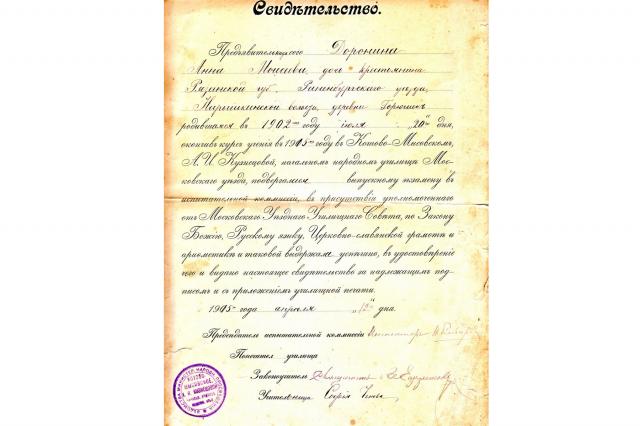 Свидѣтельство.
Предъявительница сего Доронина
Анна Моисеева, дочь крестьянина
Рязанской губ. Раненбургскаго уѣзда,
Нарышкинской волости, деревни
родившаяся въ 1902мъ году іюля „20го" дня,
окончивъ курсъ ученія въ 1915мъ году въ Котово-Миовскомъ,
А. И. Кузнецовой, начальномъ народномъ училищѣ Мос-
ковскаго уѣзда, подвергалась выпускному экзамену въ
испытательной комиссіи, въ присутствіи уполномоченнаго
отъ Московскаго Уѣзднаго Училищнаго Совѣта, по Закону
Божію, Русскому языку, Церковно-славянской грамотѣ и
ариѳметикѣ и таковой выдержала успѣшно, въ удостовѣреніе
чего и выдано настоящее свидѣтельство за надлежащимъ под-
писомъ и съ приложеніемъ училищной печати.
1915 года апрѣля „12" дня.
Предсѣдатель испытательной комиссіи
Попечитель училища
Законоучитель Священникъ
Учительница Софія